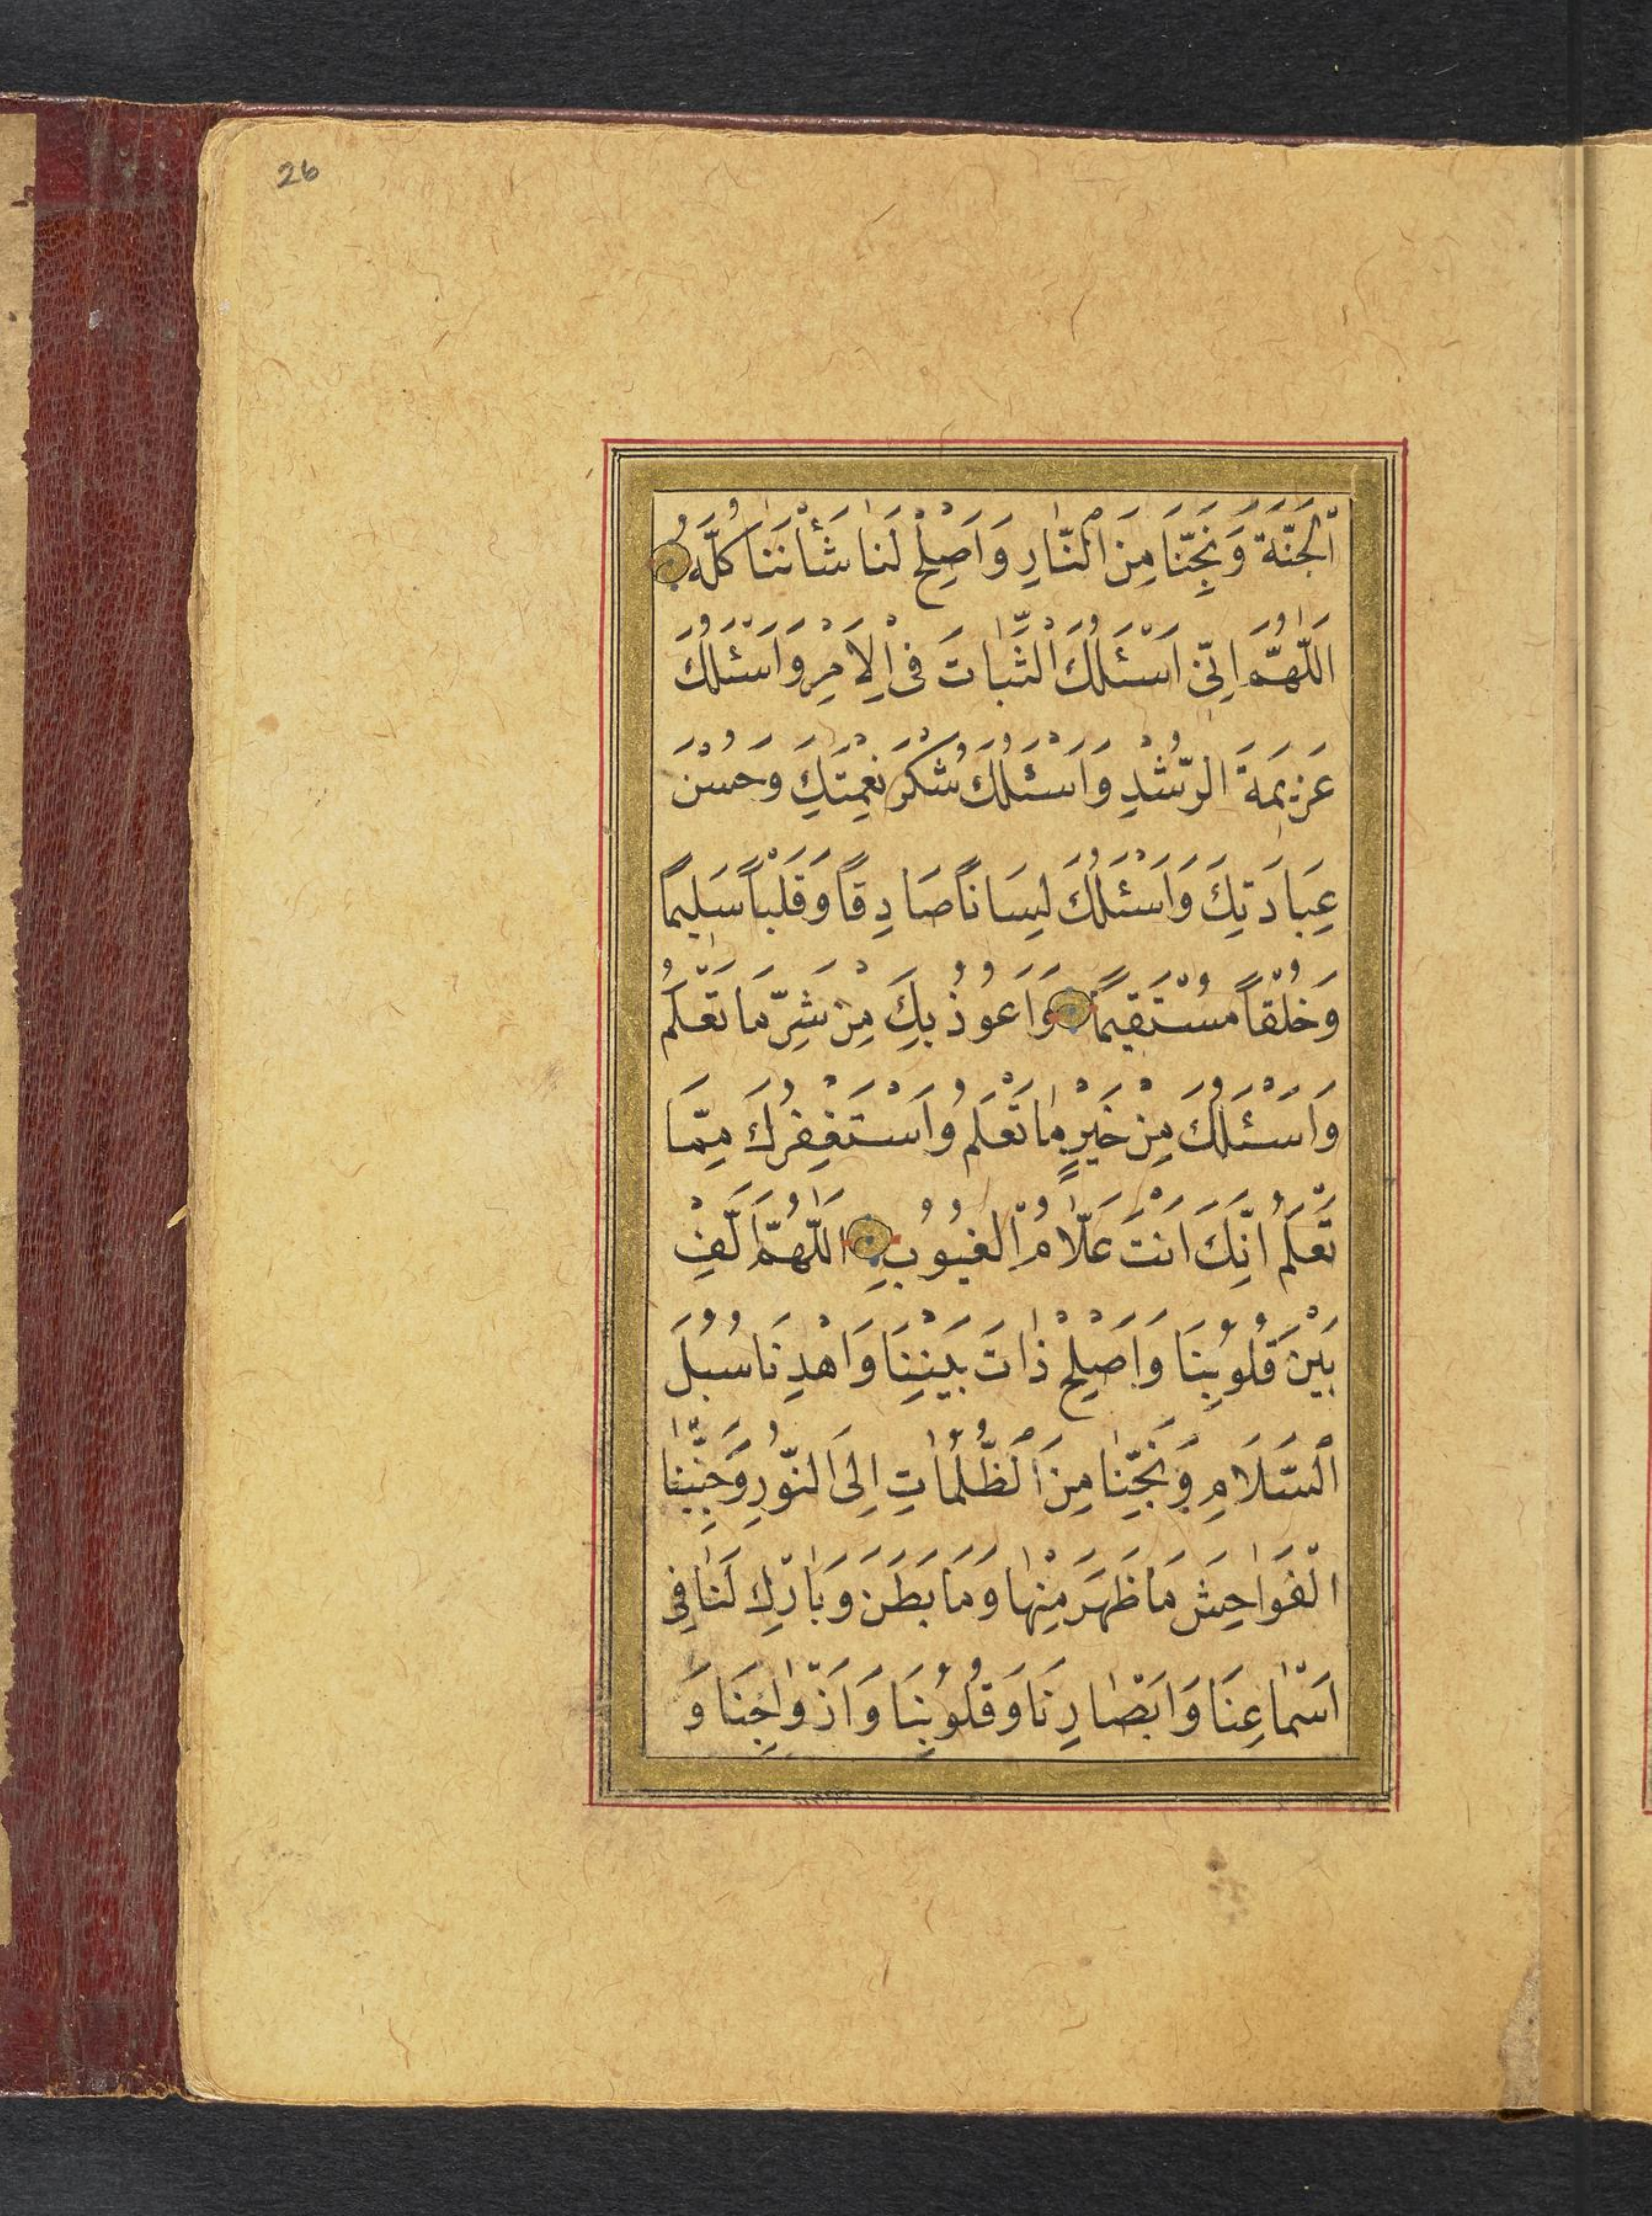 26
اَلْجَنَّةَ وَنَجِّنَا مِنَ النَّارِ وَاَصْلِحْ لَنَا شَأْنَنَا كُلَّهُ
اَللّٰهُمَّ اِنِّى اَسْئَلُكَ الثَّبَاتَ فِى الْاَمْرِ وَاَسْئَلُكَ
عَزِيمَةَ الرُّشْدِ وَاَسْئَلُكَ شُكْرَ نِعْمَتِكَ وَحُسْنَ
عِبَادَتِكَ وَاَسْئَلُكَ لِسَانًا صَادِقًا وَقَلْبًا سَلِيمًا
وَخُلْقًا مُسْتَقِيمًا وَاَعُوذُ بِكَ مِنْ شَرِّ مَا تَعْلَمُ
وَاَسْئَلُكَ مِنْ خَيْرِ مَا تَعْلَمُ وَاَسْتَغْفِرُكَ مِمَّا
تَعْلَمُ اِنَّكَ اَنْتَ عَلَّامُ الْغُيُوبِ اَللّٰهُمَّ اَلِّفْ
بَيْنَ قُلُوبِنَا وَاَصْلِحْ ذَاتَ بَيْنِنَا وَاهْدِنَا سُبُلَ
السَّلَامِ وَنَجِّنَا مِنَ الظُّلُمَاتِ اِلَى النُّورِ وَجَنِّبْنَا
الْفَوَاحِشَ مَا ظَهَرَ مِنْهَا وَمَا بَطَنَ وَبَارِكْ لَنَا فِى
اَسْمَاعِنَا وَاَبْصَارِنَا وَقُلُوبِنَا وَاَزْوَاجِنَا وَ